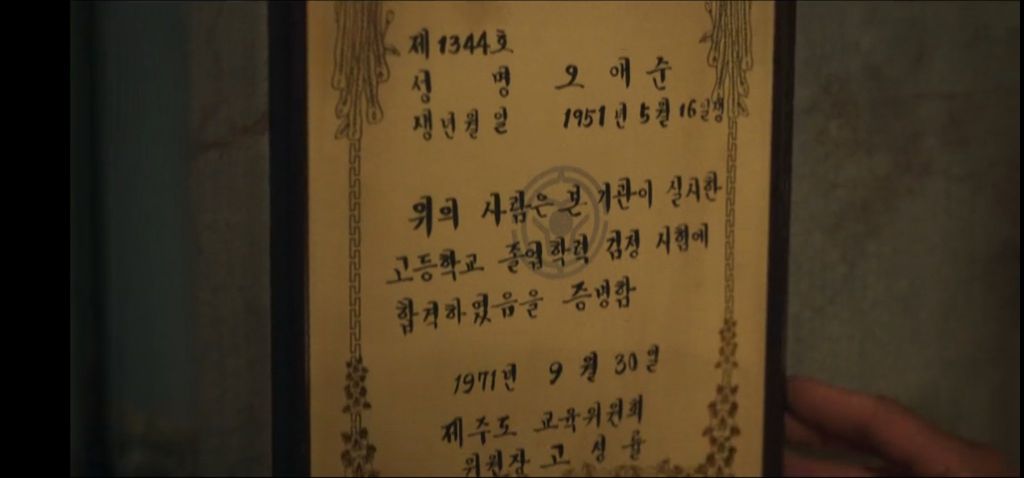 제 1344호
성 명 오 애 순
생년월일 1951년 5월 16일생
위의 사람은 본 기관이 실시한
고등학교 졸업학력 검정 시험에
합격하였음을 증명함
1971년 9월 30일
제주도 교육위원회
위원장 고 성 윤